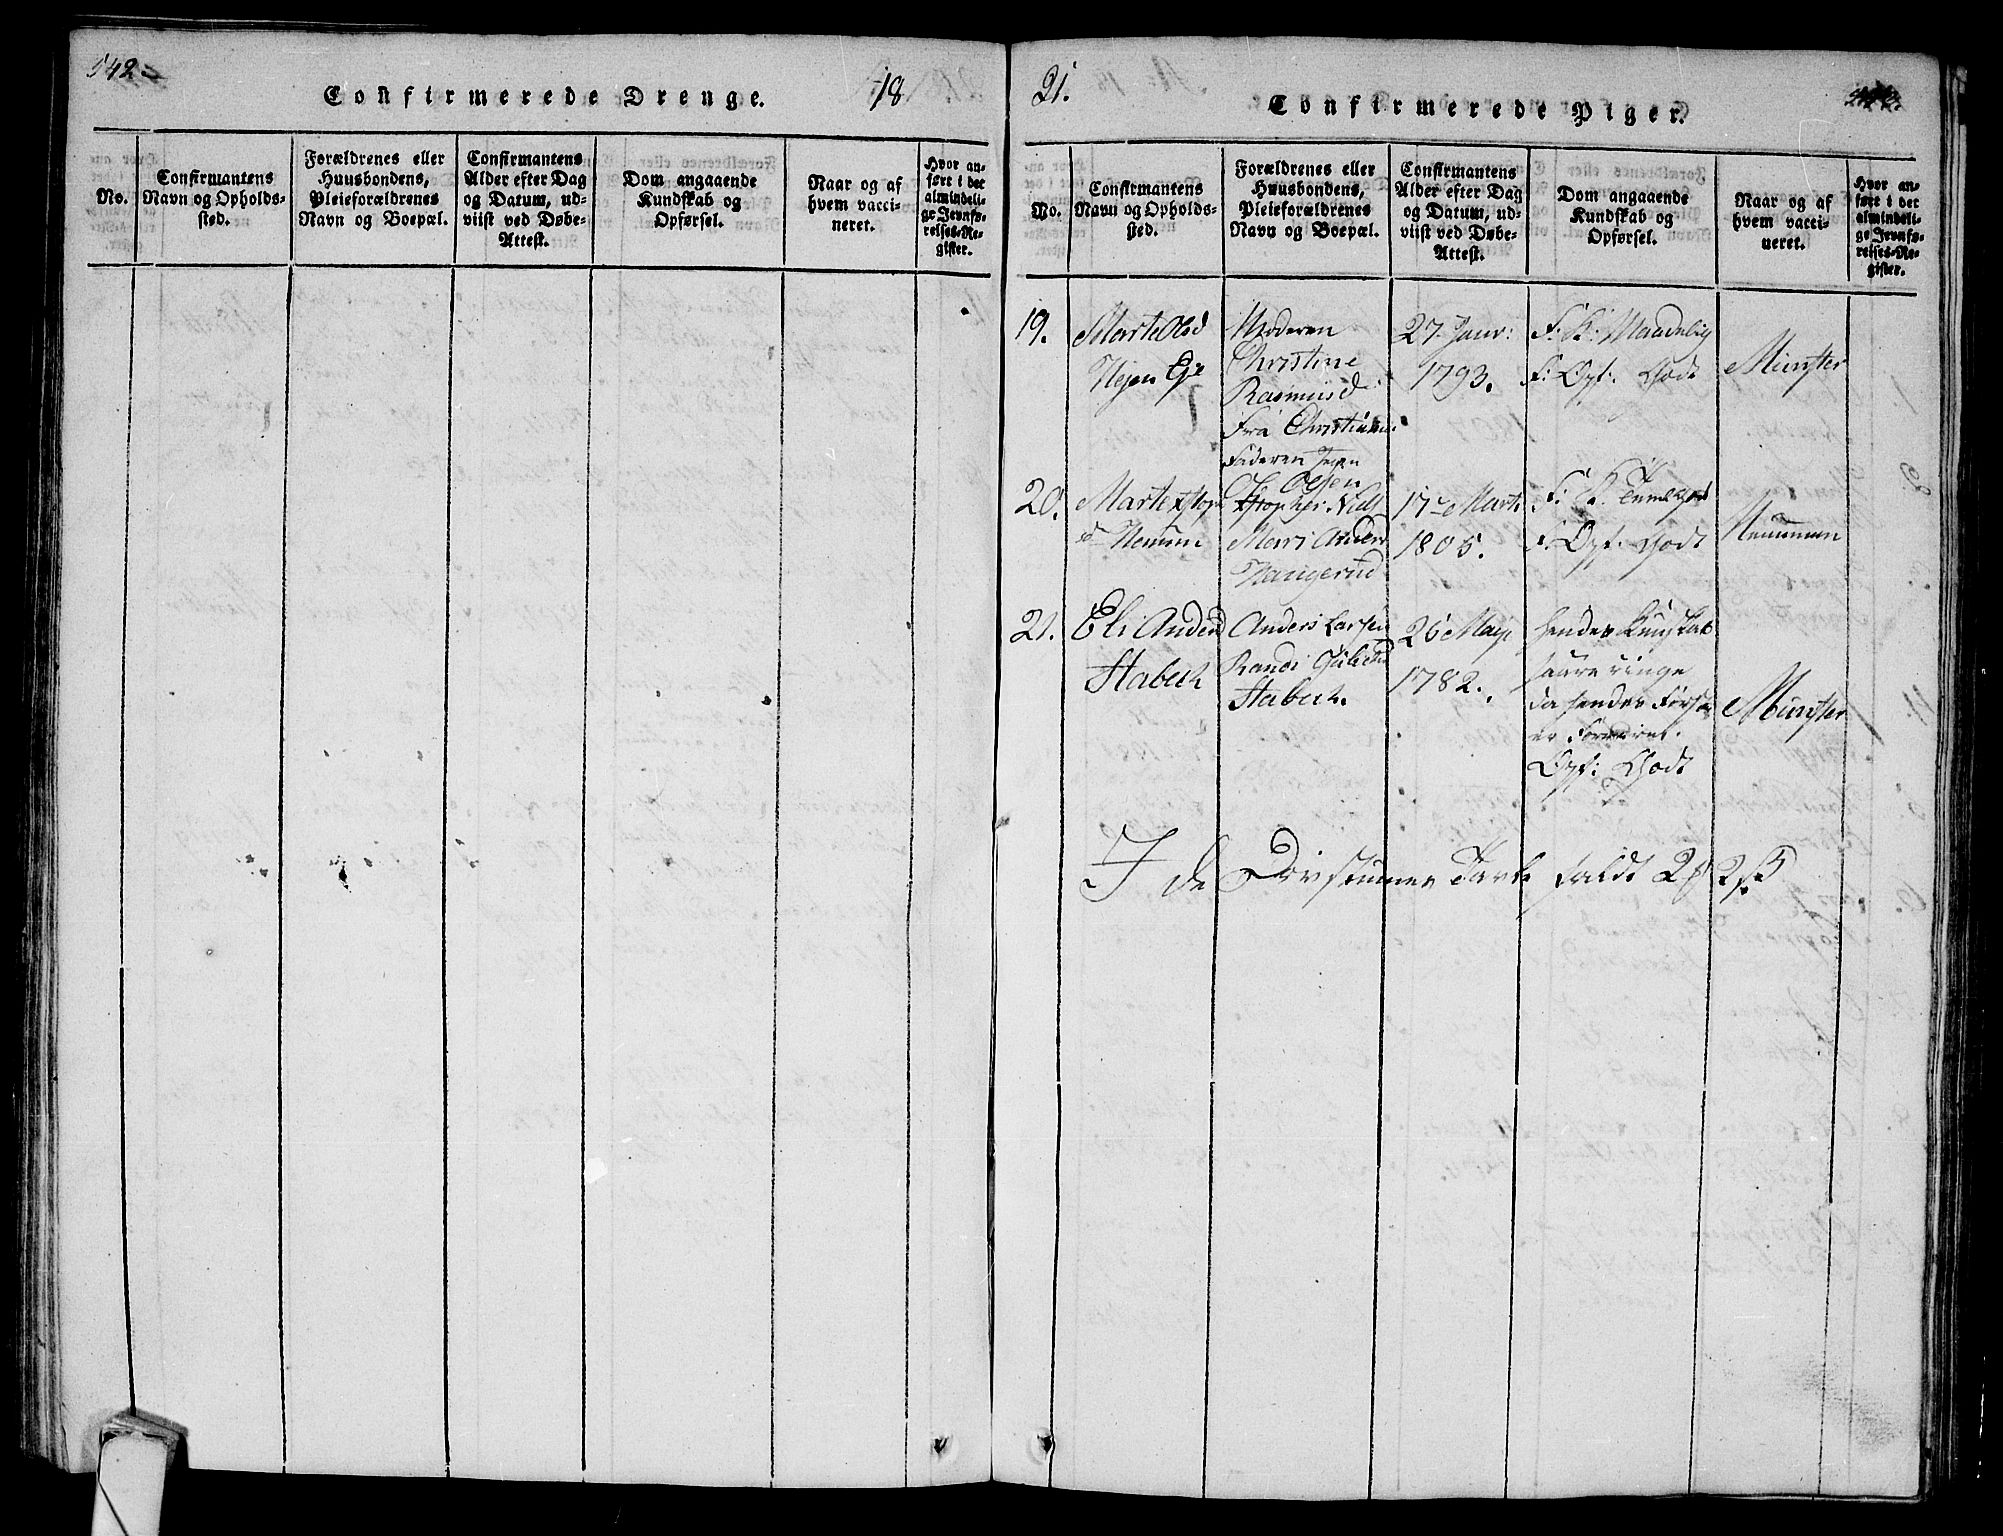 542
Confirmerede Drenge.
18
No.
Confirmantens Navn og Opholds-sted.
Forældrenes eller Huusbondens, Pleieforældrenes Navn og Boepæl.
Confirmantens Alder efter Dag og Datum, ud-viist ved Døbe-Attest.
Dom angaaende Kundskab og Opførsel.
Naar og af hvem vacci-neret.
Hvor an-ført i det almindeli-ge Jevnfø-relses-Re-gister.
21.
Confirmerede Piger.
No.
Confirmantens Navn og Opholds-sted.
Forældrenes eller Huusbondens, Pleieforældrenes Navn og Boepæl.
Confirmantens Alder efter Dag og Datum, ud-viist ved Døbe-Attest.
Dom angaaende Kundskab og Opførsel.
Naar og af hvem vacci-neret.
Hvor an-ført i det almindeli-ge Jevnfø-relses-Re-gister.
19.
Marte Olsd
Moderen
Christine
Rasmusd:
Fra Christian
Faderen
Olsen
27 Janr:
1793.
F: K: Maadelig
F: Opf: Godt
Munster
20.
Marte
Nels
Mari Anders
Haugerud
17 Marts
1805.
F: K:
F: Opf: Godt
21.
Eli Andersd
Stabech
Anders Larsen
Randi
Stabech.
26 Maje
1782.
hendes Kundskab
saare ringe
da hendes
er
Opf: Godt
Munster
I de Døvstummes Tavle faldt 2